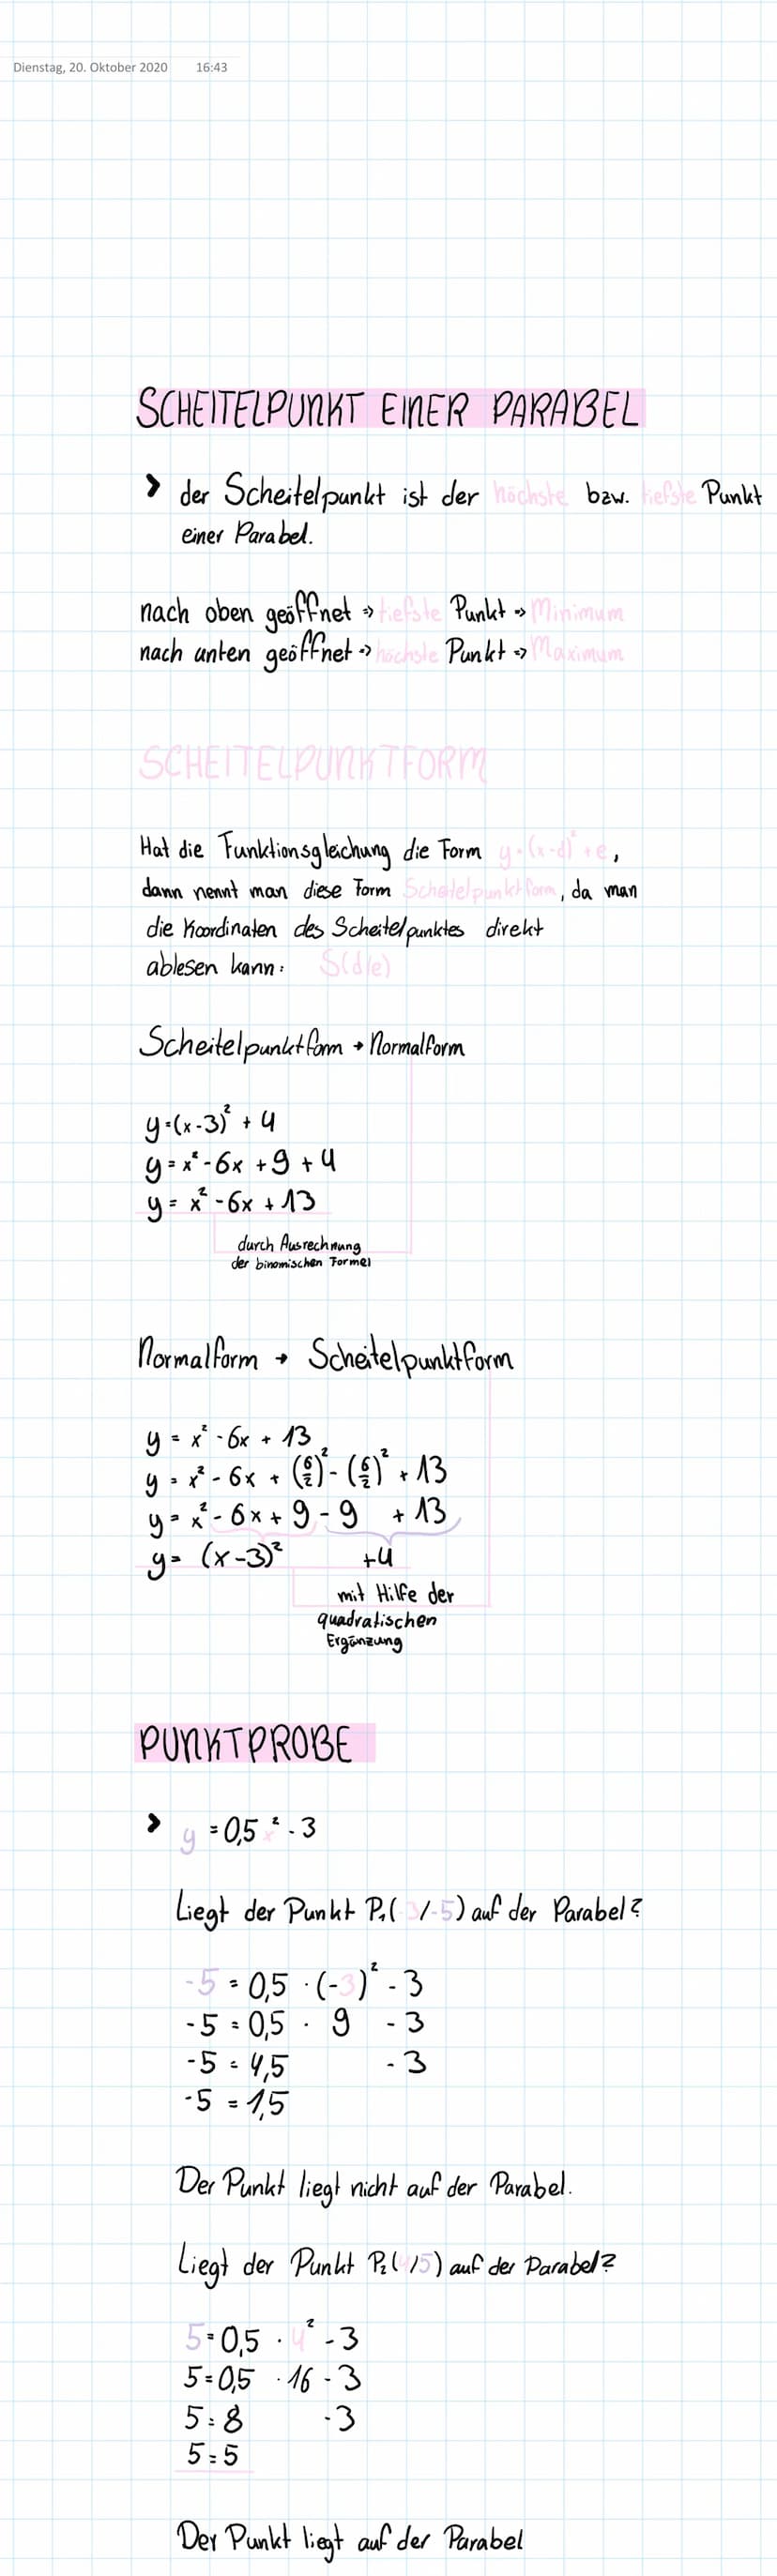 Dienstag, 20. Oktober 2020 16:43
SCHEITELPUNKT EINER PARABEL
> der Scheitelpunkt ist der höchste bzw. tiefste Punkt
einer Parabel.
nach oben geöffnet => tiefste Punkt => Minimum
nach unten geöffnet => höchste Punkt => Maximum
SCHEITELPUNKTFORM
Hat die Funktionsgleichung die Form y = (x-d)² + e,
dann nennt man diese Form Scheitelpunktform, da man
die Koordinaten des Scheitelpunktes direkt
ablesen kann: S(d/e)
Scheitelpunktform → Normalform
y = (x-3)² + 4
y = x² - 6x + 9 + 4
y = x² - 6x + 13
durch Ausrechnung
der binomischen Formel
Normalform → Scheitelpunktform
y = x² - 6x + 13
y = x² - 6x + (6/2)² - (6/2)² + 13
y = x² - 6x + 9 - 9 + 13
y = (x-3)² +4
mit Hilfe der
quadratischen
Ergänzung
PUNKTPROBE
> y = 0,5x² - 3
Liegt der Punkt P₁(-3/-5) auf der Parabel?
-5 = 0,5 · (-3)² - 3
-5 = 0,5 · 9 - 3
-5 = 4,5 - 3
-5 = 1,5
Der Punkt liegt nicht auf der Parabel.
Liegt der Punkt P₂(4/5) auf der Parabel?
5 = 0,5 · 4² - 3
5 = 0,5 · 16 - 3
5 = 8 - 3
5 = 5
Der Punkt liegt auf der Parabel